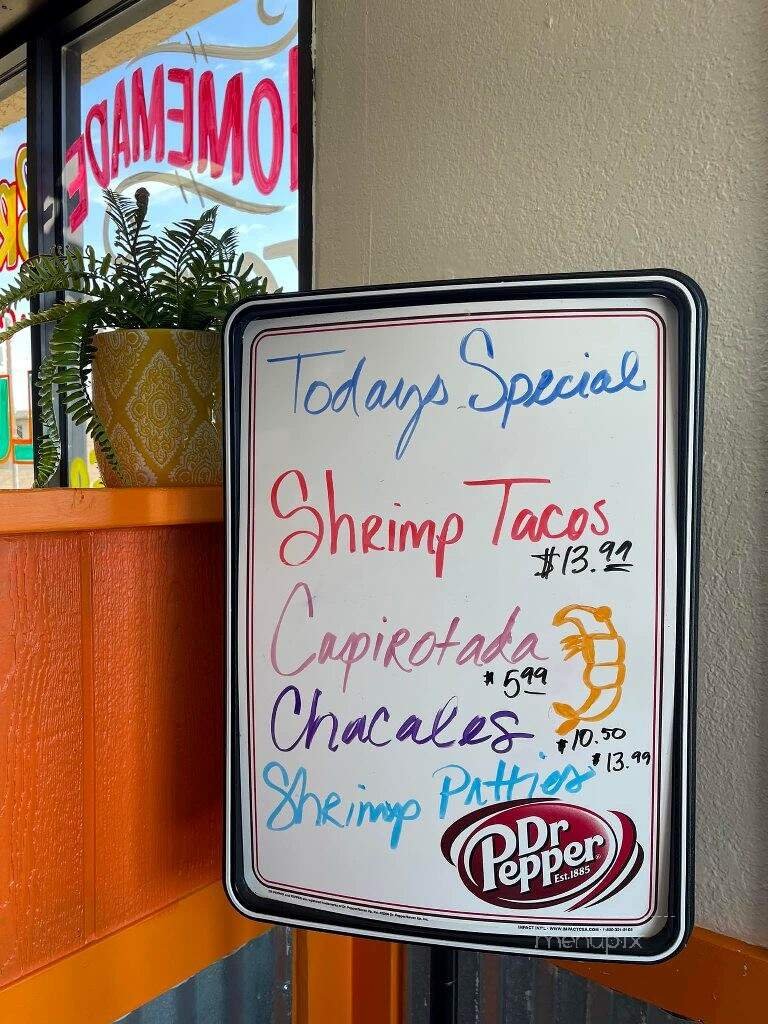 HOMEMADE
Todays Special
Shrimp Tacos
$13.99
Capirotada
$5.99
Chacales
$10.50
$13.99
Shrimp Patties
Dr
Pepper
Est.1885
menupix